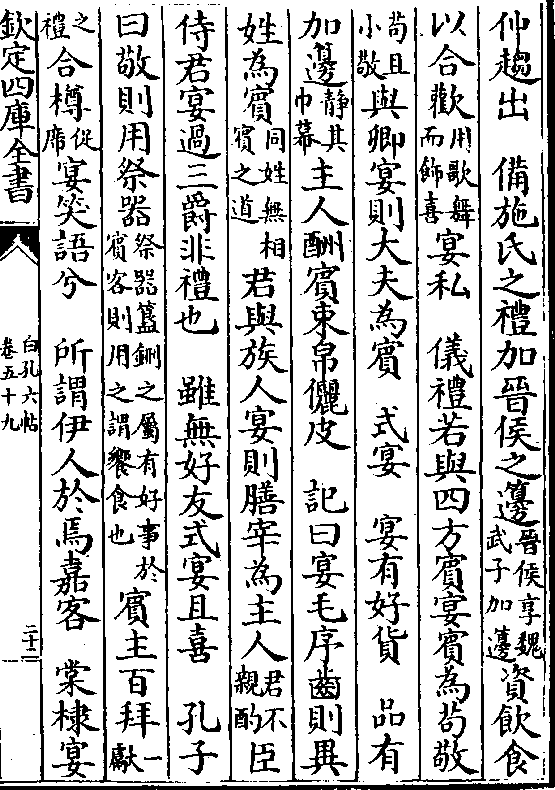 仲趨出　備施氏之禮加晉侯之籩晉侯享魏武子加籩資飲食
以合歡用歌舞而飾喜宴私　儀禮若與四方賓宴賓為苟敬
苟且小敬與卿宴則大夫為賓　式宴　宴有好貨　品有
加籩静其巾幕主人酬賓束帛儷皮　記曰宴毛序齒則異
姓為賓同姓無相賓之道君與族人宴則膳宰為主人君不親酌臣
侍君宴過三爵非禮也　雖無好友式宴且喜　孔子
曰敬則用祭器祭器簋鉶之屬有好事於賓客則用之謂饗食也賓主百拜一獻
之禮合樽促席宴笑語兮　所謂伊人於焉嘉客　棠棣宴
欽定四庫全書
白孔六帖
卷五十九
二十二